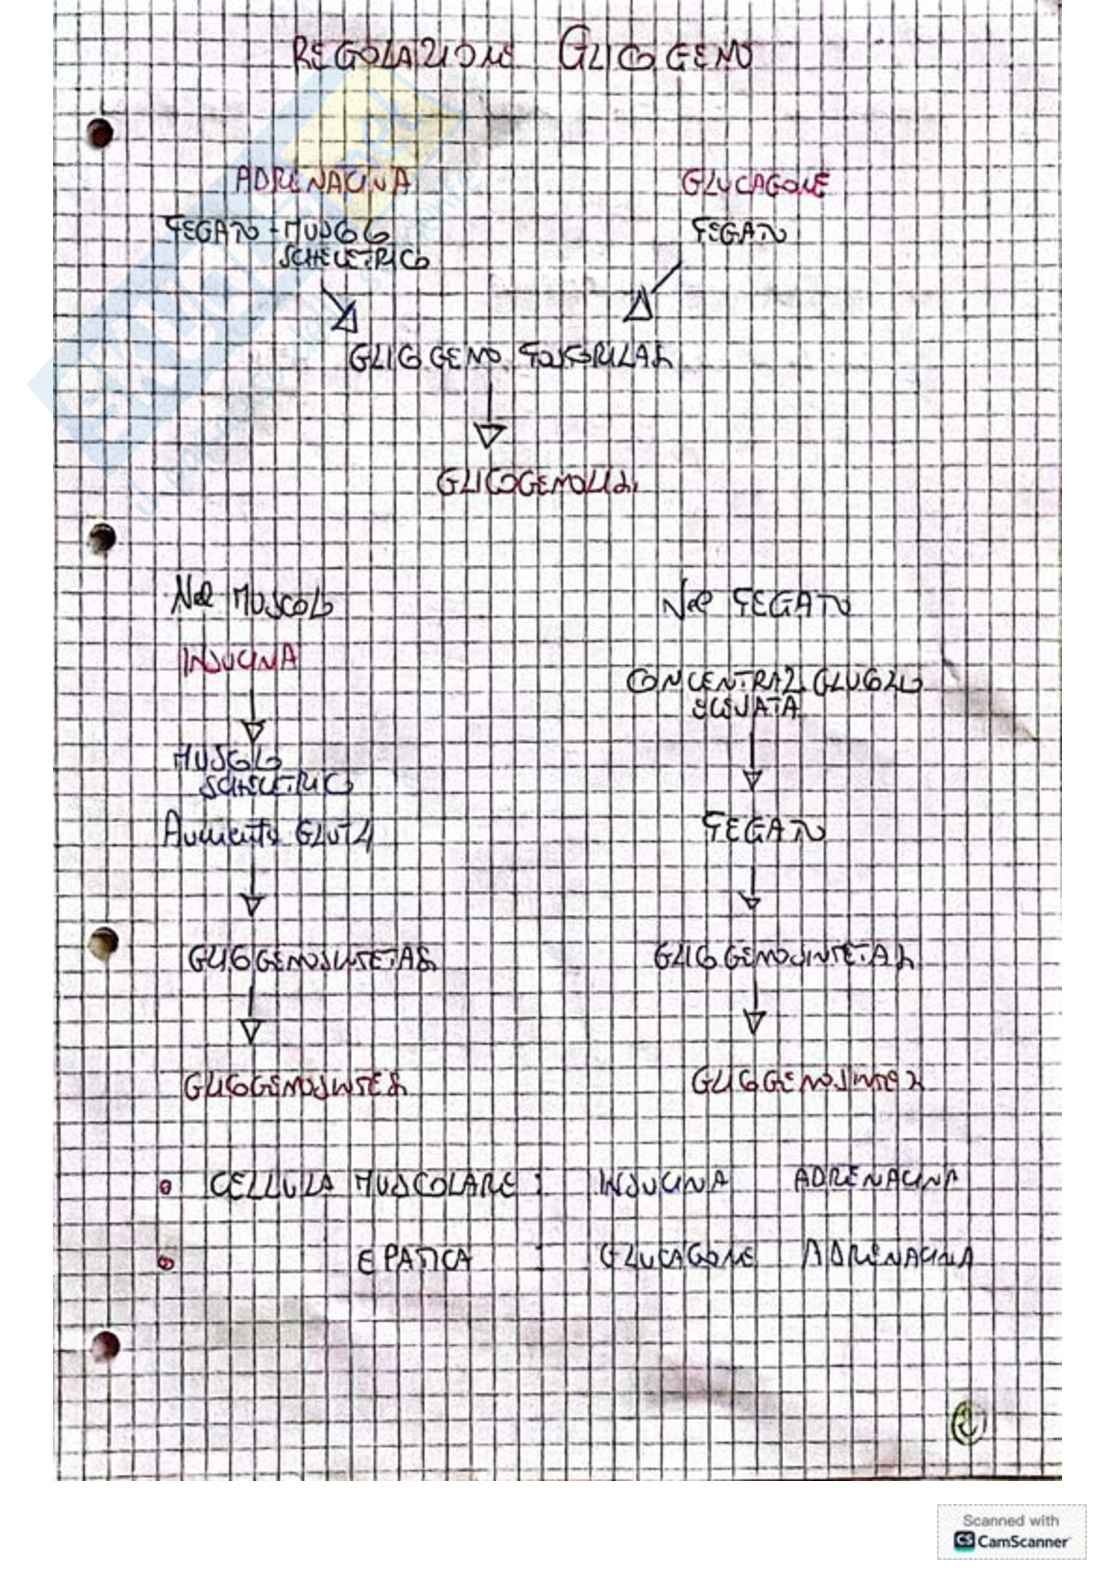 REGOLAZIONE GLICOGENO
ADRENALINA GLUCAGONE
FEGATO - MUSCOLO FEGATO
SCHELETRICO
GLICOGENO FOSFORILASI
GLICOGENOLISI
Nel MUSCOLO Nel FEGATO
INSULINA
CONCENTRAZ. GLUCOSIO
ELEVATA
MUSCOLO
SCHELETRICO
Aumento GLUT4 FEGATO
GLICOGENOSINTETASI GLICOGENOSINTETASI
GLICOGENOSINTESI GLICOGENOSINTESI
• CELLULA MUSCOLARE : INSULINA ADRENALINA
• EPATICA : GLUCAGONE ADRENALINA
2
Scanned with
CS CamScanner